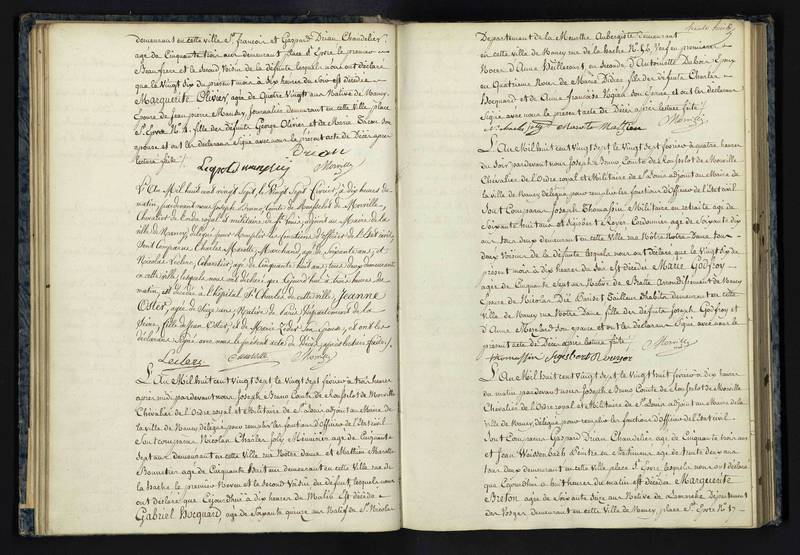 demeurant en cette ville St. francois et Gaspard Drian Chandelier,
agé de Cinquante trois ans demeurant place St Epvre le premier
Beaufrere et le second Voisin de la défunte lesquels nous ont déclaré
que le Vingt Six du présent mois à Dix heures du Soir est décédée
Marguerite Olivier, agée de Quatre Vingt ans Native de Nancy,
Epouse de Jean pierre Journalier demeurant en cette Ville, place
St. Epvre N.o fille des défunts George Olivier et de Marie son
epouse et ont les déclarans Signé avec nous le présent acte de Décès après
lecture faite /
Drian
Leopold Morville
L'An Mil huit cent vingt Sept, le Vingt Sept février, à dix heures du
matin, pardevant nous Joseph Bruno, Comte de Rousselot de Morville,
Chevalier de l'ordre royal et militaire de St. Louis, adjoint au Maire de la ville
de Nancy, délégué pour remplir les fonctions d'officier de l'Etat civil,
Sont comparus Charles Marotte, Marchand, agé de Soixante ans, et
Nicolas Leclerc, agé de Cinquante huit ans, tous deux demeurant
en cette ville, lesquels nous ont déclaré que Cejourd'hui à trois heures du
matin, est décédée à l'hôpital St. Charles de cette ville, Jeanne
Oster, agée de Seize ans, Native de Paris Département de la
Seine, fille de Jean Oster, et de Marie son Epouse, et ont les
déclarans Signé avec nous le présent acte de Décès, après lecture faite /
Leclerc Marotte Morville
L'An Mil huit cent Vingt Sept le Vingt Sept février à trois heures
après midi pardevant nous Joseph Bruno Comte de Rousselot de Morville
Chevalier de l'Ordre royal et Militaire de St Louis adjoint au Maire de
la ville de Nancy délégué pour remplir les fonctions d'Officier de l'Etat civil
Sont comparus Nicolas Charles Joly Menuisier agé de Cinquante
Sept ans demeurant en cette Ville rue Nôtre Dame et Mathieu Marotte
Bonnetier agé de Cinquante huit ans demeurant en cette Ville rue de
la hache le premier Neveu et le second Voisin du défunt lesquels nous
ont déclaré que Cejourd'hui à dix heures du Matin est décédé
Gabriel Hocquard, agé de Soixante quinze ans Natif de St. Nicolas
Département de la Meurthe Aubergiste demeurant
en cette Ville de Nancy rue de la hache N.o 56 Veuf en premieres
Noces d'Anne en Seconde d'Antoinette Dubois Epoux
en Quatrieme Noces de Marie Didier fils des défunts Charles
Hocquard et de Anne francoise son Epouse, et ont les déclarans
Signé avec nous le présent acte de Décès après lecture faite /
N. Charles Joly Marotte Mathieu Morville
L'An Mil huit cent Vingt Sept le Vingt Sept février à quatre heures
du Soir pardevant nous Joseph Bruno Comte de Rousselot de Morville
Chevalier de l'Ordre royal et Militaire de St Louis adjoint au Maire de
la Ville de Nancy délégué pour remplir les fonctions d'Officier de l'Etat civil
Sont Comparus Joseph Thomassin Militaire en retraite agé de
Soixante huit ans et Sigisbert Royer Cordonnier agé de Soixante dix
ans tous deux demeurant en cette Ville rue Nôtre Dame tous
deux Voisins de la défunte lesquels nous ont déclaré que le Vingt Six du
présent mois à dix heures du Soir est décédée Marie Godfroy
agée de Cinquante Sept ans Native de Arrondissement de Nancy
Epouse de Nicolas Dié Tailleur d'habits demeurant en cette
Ville de Nancy rue Notre Dame fille des défunts Joseph Godfroy et
d'Anne son epouse et ont les déclarans Signé avec nous le
présent acte de Décès après lecture faite /
Thomassin Sigisbert Royer Morville
L'An Mil huit cent Vingt Sept le Vingt huit février à dix heures
du matin pardevant nous Joseph Bruno Comte de Rousselot de Morville
Chevalier de l'Ordre royal et Militaire de St Louis adjoint au Maire de la
Ville de Nancy délégué pour remplir les fonctions d'Officier de l'Etat civil
Sont Comparus Gaspard Drian Chandelier agé de Cinquante trois ans
et Jean Peintre en agé de trente deux ans
tous deux demeurant en cette Ville place St. Epvre lesquels nous ont déclaré
que Cejourd'hui à huit heures du matin est décédée Marguerite
Breton agée de Soixante Seize ans Native de Lamarche Département
des Vosges demeurant en cette Ville de Nancy, place St. Epvre N.o 17